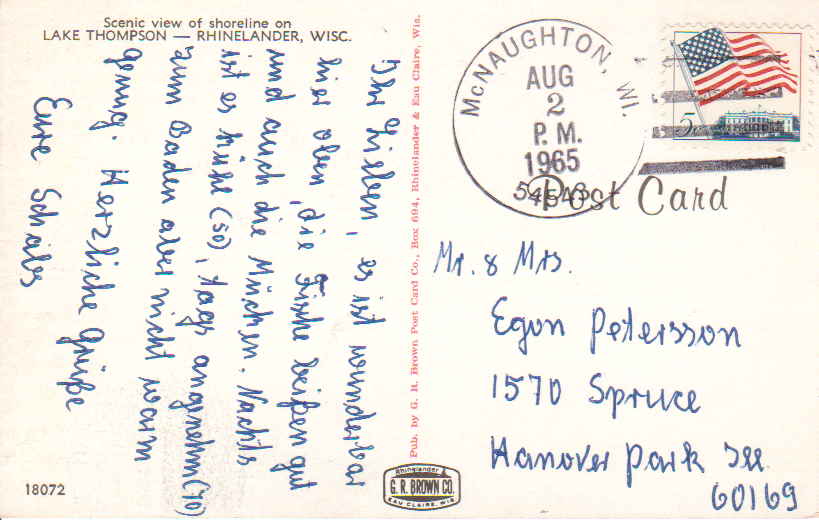 Scenic view of shoreline on
LAKE THOMPSON — RHINELANDER, WISC.
Ihr Lieben, es ist wunderbar
hier oben, die Fische beißen gut
und auch die Mücken. Nachts
ist es kühl (50), tags angenehm (70)
zum Baden aber nicht warm
genug. Herzliche Grüße
Eure
18072
Pub. by G. R. Brown Post Card Co., Box 694, Rhinelander & Eau Claire, Wis.
Rhinelander
G. R. BROWN CO.
EAU CLAIRE, WIS
McNAUGHTON, WI.
AUG
2
P.M.
1965
54543
5c
Post Card
Mr. & Mrs.
Egon Petersson
1570 Spruce
Hanover Park Ill.
60169